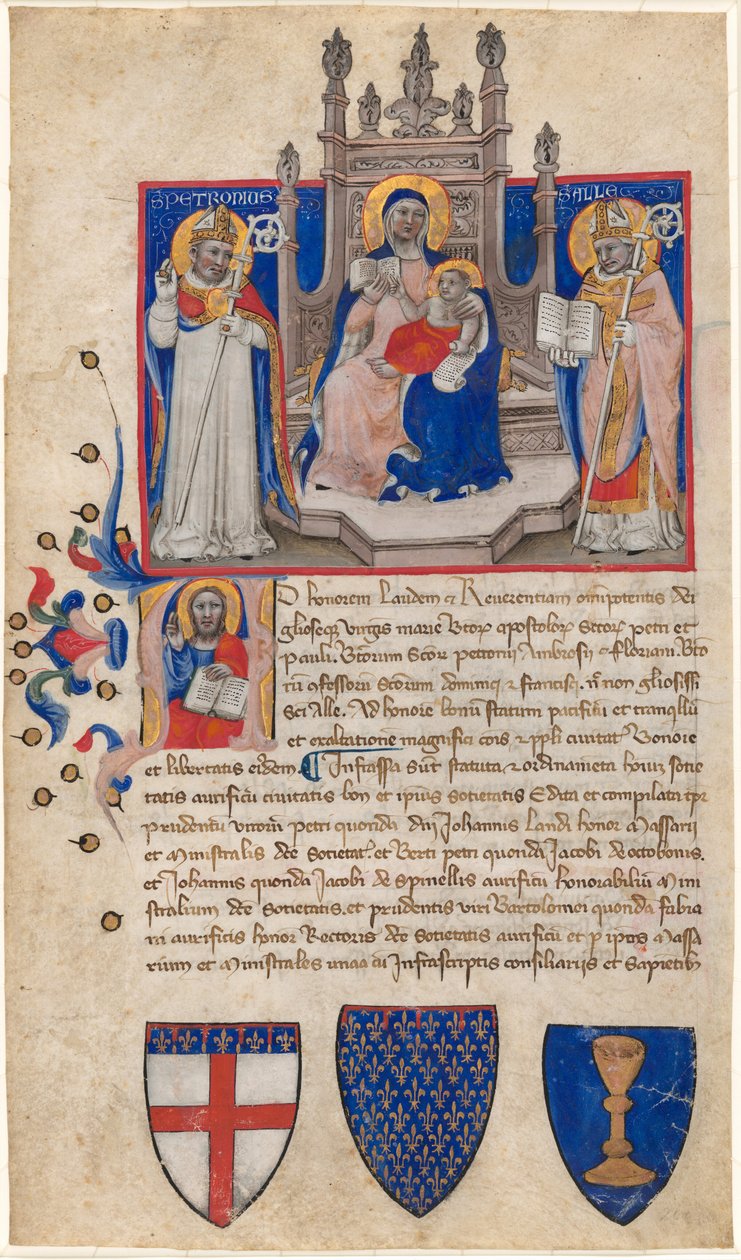 S PETRONIUS
S ALLE
AD honorem Laudem & Reverentiam omnipotentis dei
gloseq; virgis marie btorꝝ apostolorꝝ Sctorꝝ petri et
pauli. btorum Sctorꝝ petronij Ambrosij & floriani.
confessorum Sctorum dominici & francisci. nō gliosissi
Sci Alle. Ad honorē bonū statum pacificū et tranqllū
et exaltationē magnifici & ppli civitat Bonoīe
et libertatis eiꝰdem. ¶ Infrassa sūt statuta & ordinamēta hoiuȝ Sotie
tatis aurificū civitatis bon et ipius Societatis Edita et compilata
prudentū virorū petri quondā Johannis Landi honor Massarii
et Ministralis dcē Societat. et Berti petri quondā Jacobi de octobonis.
et Johannis quondā Jacobi de Spinellis aurificū honorabiliū Mini
stralium dcē Societatis. et prudentis viri Bartolomei quondā fabia
ni aurificis honor Rectoris dcē Societatis aurificū et p ipōs Massa
rium et Ministrales unaa cū Infrascriptis consiliariis et Sapietibꝰ